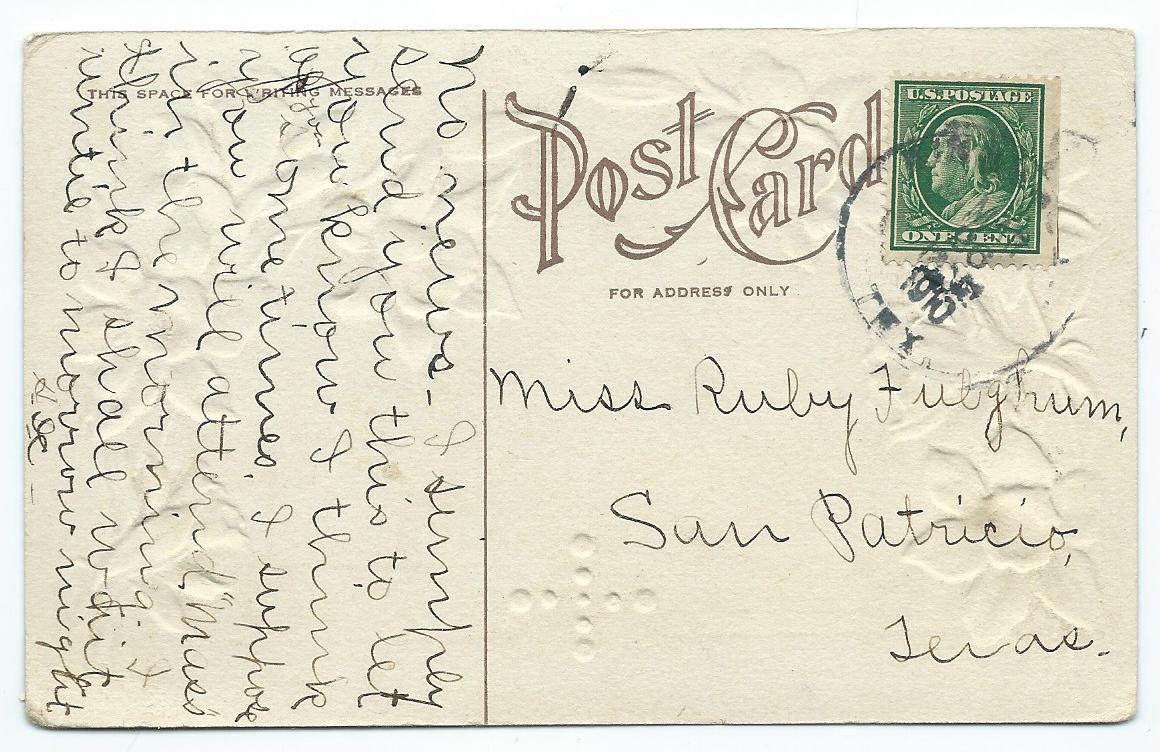 THIS SPACE FOR WRITING MESSAGES
No news - I simply
send you this to let
you know I think
of you some times. I suppose
you will attend "Mass"
in the morning. I
think I shall wait
until to morrow night
Post Card
FOR ADDRESS ONLY
U.S. POSTAGE
ONE CENT
1910
TEX
Miss Ruby Fulghum,
San Patricio,
Texas.